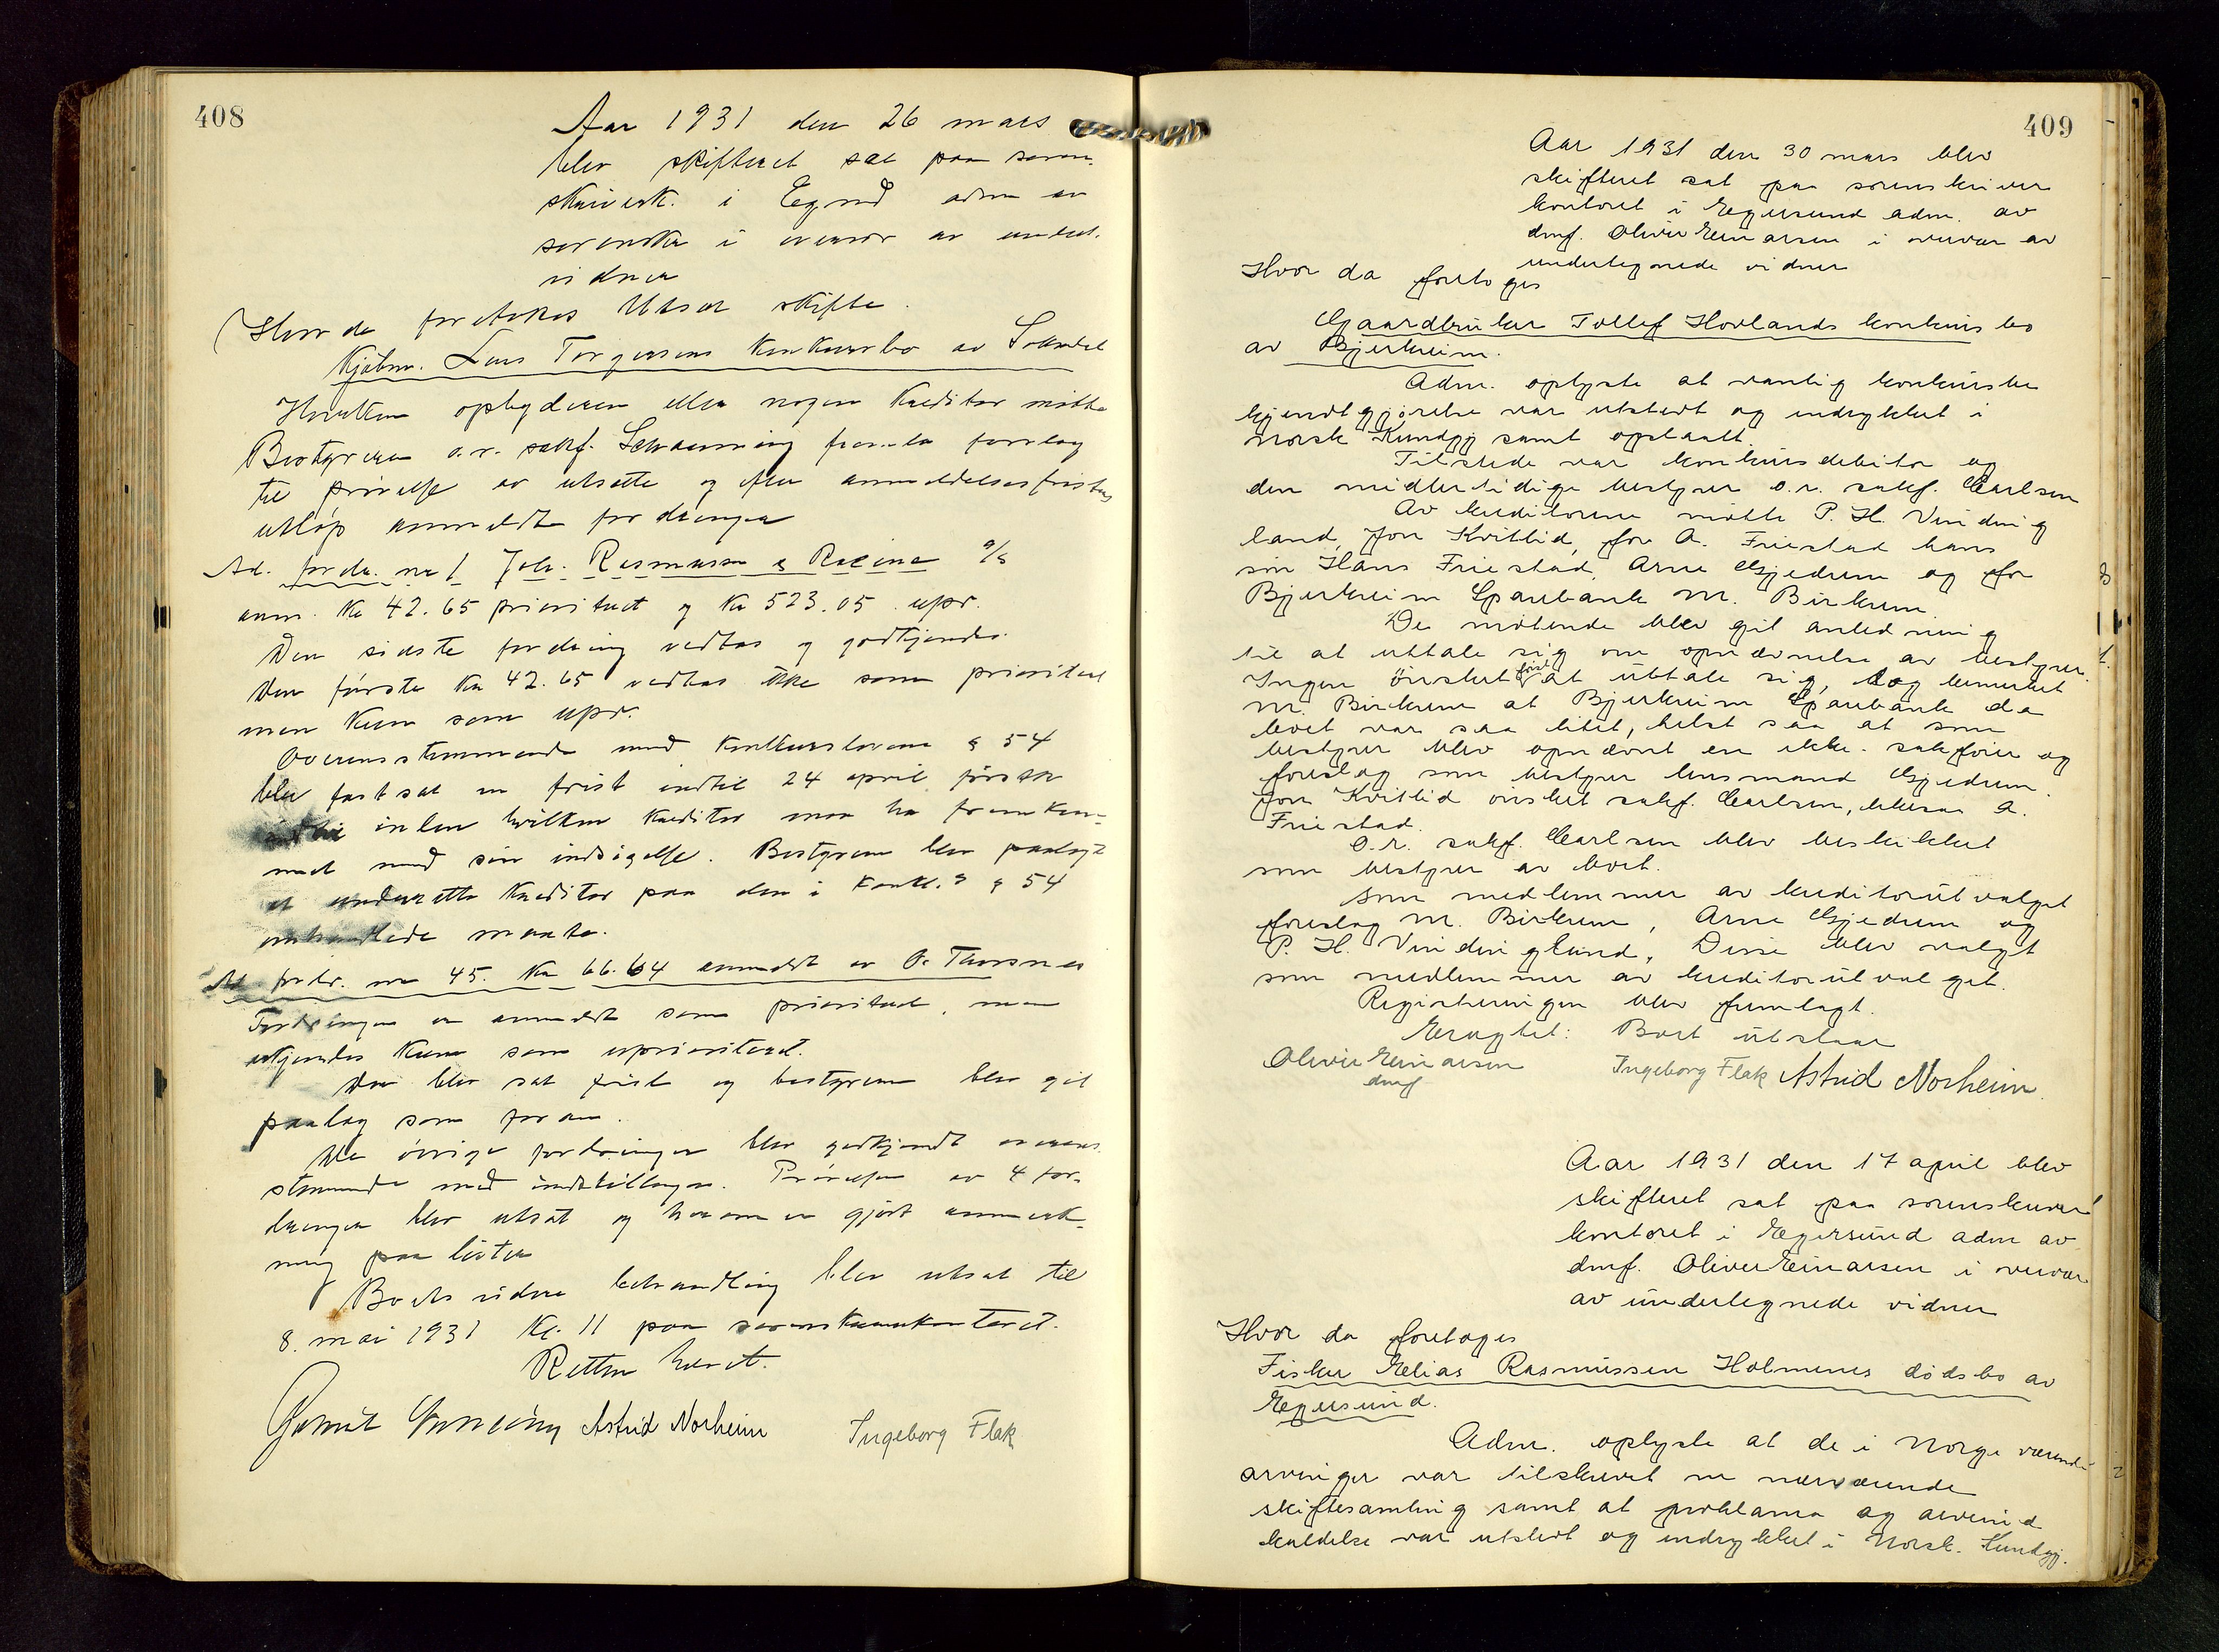 408
Aar 1931 den 26 mars
blev skifteret sat paa soren-
skriverk. i Egersund adm av
sorenskr i overvær av undert.
vidner
Hvor da foretokes utsat skifte.
Kjøbm. Lars Torgersens konkursbo av
Hverken opbyderen eller nogen kreditor møtte
Bestyreren o.r. sakf. Schanning fremla forslag
til prøvelse av utsatte og efter anmeldelsesfristens
utløp anmeldte fordringer
Ad. fordr. nr 1 Joh. Rasmussen & Racine A/S
anm. Kr 42.65 prioritert og Kr 523.05 upr.
Den sidste fordring vedtas og godkjendes.
Den første Kr 42.65 vedtas ikke som prioritert
men kun som upr.
Overensstemmende med konkurslovens § 54
blev fastsat en frist indtil 24 april førstk
inden hvilken kreditor maa ha fremkom-
met med sin indsigelse. Bestyreren blev paalagt
at underrette kreditor paa den i konkl.s § 54
omhandlede maate.
Ad fordr. nr 45. Kr 66.64 anmeldt av O. Thorsnes
Fordringen er anmeldt som prioritert, men
erkjendes kun som uprioritert.
Der blev sat frist og bestyreren blev git
paalæg som foran.
De øvrige fordringer blev godkjendt overens-
stemmende med indstillingen. Prøvelsen av 4 for-
dringer blev utsat og herom er gjort anmerk-
ning paa listen
Boets videre behandling blev utsat til
8. mai 1931 Kl. 11 paa sorenskriverkontoret.
Retten hævet.
Astrid Norheim Ingeborg Flak
409
Aar 1931 den 30 mars blev
skifteret sat paa sorenskriver
kontoret i Egersund adm. av
dmf. Oliver Einarsen i overvær av
undertegnede vidner
Hvor da foretoges
Gaardbruker Tollef Hovlands konkursbo
av Bjerkreim.
Adm. oplyste at vanlig konkursbe
kjendtgjørelse var utstedt og indrykket i
Norsk Kundgj samt opslaatt.
Tilstede var konkursdebitor og
den midlertidige bestyrer o.r. sakf. Carlsen
Av kreditorene møtte P. H. Vinding
land, Jon Kvitlid, for A. Friestad hans
søn Hans Friestad, Arne Gjedrem og for
Bjerkreim Sparebank M. Birkrem.
De møtende blev git anledning
til at uttale sig om opnævnelse av bestyrer.
Ingen ønsket først at uttale sig, dog bemerket
M. Birkrem at Bjerkreim Sparebank da
boet var saa litet, helst saa at som
bestyrer blev opnævnt en ikke-sakfører og
foreslog som bestyrer lensmand Gjedrem.
Jon Kvitlid ønsket sakf. Carlsen, likesaa A.
Friestad.
O.r. sakf. Carlsen blev beskikket
som bestyrer av boet.
Som medlemmer av kreditorutvalget
foreslog M. Birkrem, Arne Gjedrem og
P. H. Vindingland, Disse blev valgt
som medlemmer av kreditorutvalget.
Registreringen blev fremlagt.
Eragtet: Boet utstaar
Oliver Einarsen Ingeborg Flak Astrid Norheim.
dmf
Aar 1931 den 17 april blev
skifteret sat paa sorenskriver
kontoret i Egersund adm av
dmf. Oliver Einarsen i overvær
av undertegnede vidner
Hvor da foretoges
Fisker Elias Rasmussen Holmenes dødsbo av
Egersund.
Adm. oplyste at de i Norge værende
arvinger var tilskrevet om nærværende
skiftesamling samt at proklama og arveind
kaldelse var utstedt og indrykket i Norsk. Kundgj.